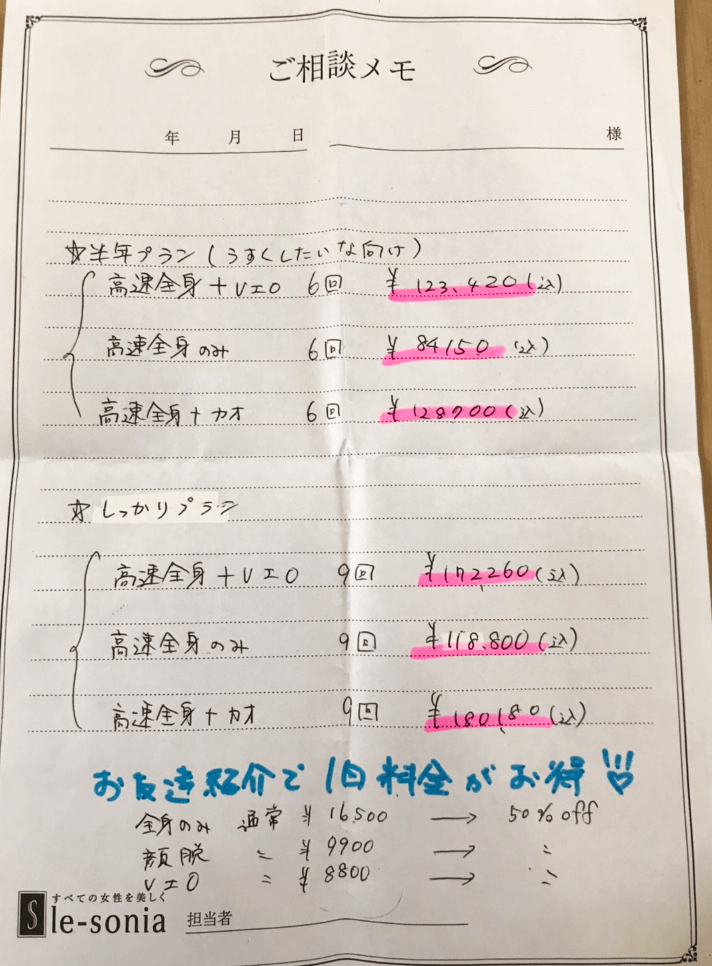 ご相談メモ
年 月 日 様
☆半年プラン(うすくしたいな向け)
高速全身+VIO 6回 ¥123.420(込)
高速全身のみ 6回 ¥84150(込)
高速全身+カオ 6回 ¥128700(込)
☆しっかりプラン
高速全身+VIO 9回 ¥172,260(込)
高速全身のみ 9回 ¥118.800(込)
高速全身+カオ 9回 ¥180,180(込)
お友達紹介で1回料金がお得!!
全身のみ 通常 ¥16500 → 50%off
顔脱 〃 ¥9900 → 〃
VIO 〃 ¥8800 → 〃
すべての女性を美しく
S le-sonia 担当者